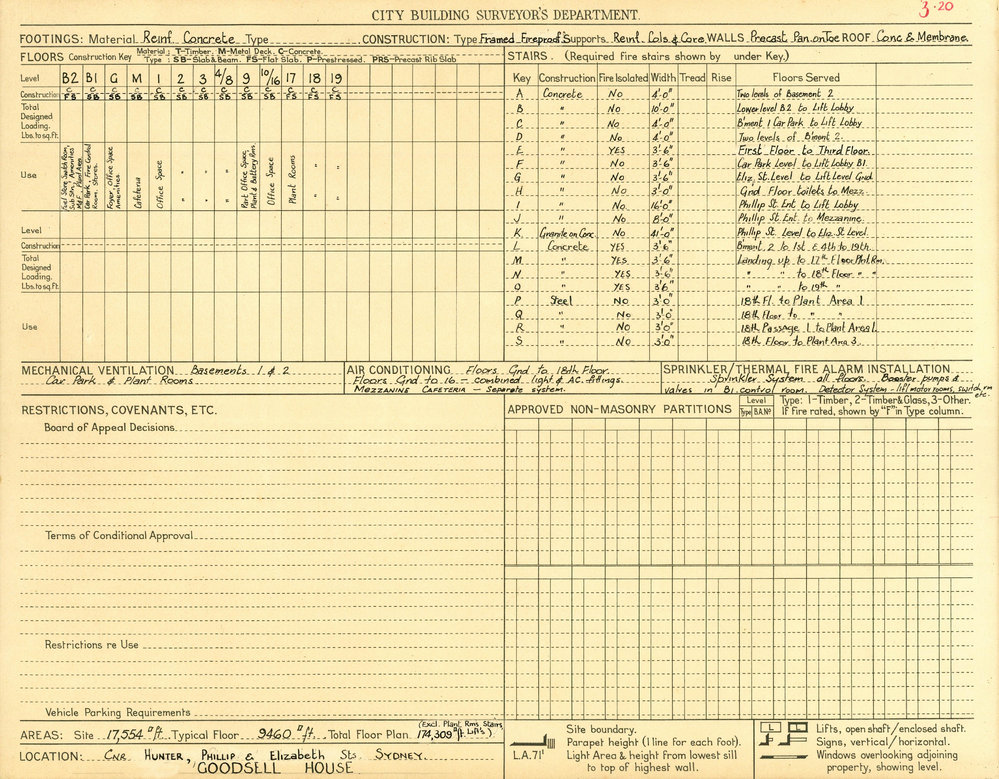 3.20
CITY BUILDING SURVEYOR'S DEPARTMENT.
FOOTINGS: Material Reinf. Concrete Type CONSTRUCTION: Type Framed Fireproof Supports Reinf. Cols. & Core, WALLS Precast Pan. on Toe ROOF Conc & Membrane.
FLOORS Construction Key Material; T-Timber. M-Metal Deck. C-Concrete.
Type: SB-Slab & Beam. FS-Flat Slab. P-Prestressed. PRS-Precast Rib Slab
Level B2 B1 G M 1 2 3 4/8 9 10/16 17 18 19
Construction C C C C C C C C C C C C C
FS SB SB SB SB SB SB SB SB SB FS FS SB
Total
Designed
Loading.
Lbs. to sq. ft.
Use
Fuel Store, Switch Room, Sub Stn, Amenities M&E. Plant Area
Car Park, Fire Control Room, Stores.
Foyer, Office Space Amenities
Cafeteria
Office Space
"
"
"
Part Office Space, Plant & Battery Rms.
Office Space
Plant Rooms
"
"
Level
Construction
Total
Designed
Loading.
Lbs. to sq. ft.
Use
STAIRS. (Required fire stairs shown by under Key.)
Key Construction Fire Isolated Width Tread Rise Floors Served
A Concrete No 4'-0" Two levels of Basement 2
B " No 10'-0" Lower level B2 to Lift Lobby
C " No 4'-0" B'ment 1 Car Park to Lift Lobby
D " No 4'-0" Two levels of B'ment 2.
E " YES 3'-6" First Floor to Third Floor.
F " No 3'-6" Car Park Level to Lift Lobby B1.
G " No 3'-6" Eliz. St. Level to Lift Level Gnd
H " No 3'-0" Gnd. Floor toilets to Mezz.
I " No 16'-0" Phillip St. Ent to Lift Lobby
J " No 8'-0" Phillip St. Ent. to Mezzanine.
K Granite on Conc. No 41'-0" Phillip St. Level to Eliz. St. Level.
L Concrete YES 3'6" B'ment. 2 to 1st & 4th to 19th.
M " YES 3'-6" Landing up to 17th Floor Plnt. Rm.
N " YES 3'-6" " " to 18th Floor " "
O " YES 3'6" " " to 19th "
P Steel No 3'0" 18th Fl. to Plant Area 1
Q " No 3'0" 18th Floor to " "
R " No 3'0" 18th Passage 1 to Plant Area 1.
S " No 3'0" 18th Floor to Plant Area 3.
MECHANICAL VENTILATION Basements 1 & 2
Car Park & Plant Rooms.
AIR CONDITIONING Floors Gnd to 18th Floor.
Floors Gnd to 16 - combined light & A.C. fittings.
MEZZANINE CAFETERIA - Separate system.
SPRINKLER/THERMAL FIRE ALARM INSTALLATION
Sprinkler System all floors. Booster pumps &
valves in B1. control room. Detector System - lift motor rooms, switch rm etc.
RESTRICTIONS, COVENANTS, ETC.
Board of Appeal Decisions.
Terms of Conditional Approval
Restrictions re Use
Vehicle Parking Requirements
APPROVED NON-MASONRY PARTITIONS
Level
Type B.A.No
Type: 1-Timber, 2-Timber & Glass, 3-Other.
If Fire rated, shown by "F" in Type column.
AREAS: Site 17,554 □ft. Typical Floor 9460 □ft. Total Floor Plan. 174,309 □ft. (Excl. Plant Rms Stairs & Lifts)
LOCATION: Cnr. HUNTER, PHILLIP & ELIZABETH STS. SYDNEY.
GOODSELL HOUSE
Site boundary.
Parapet height (1 line for each foot).
L.A. 71' Light Area & height from lowest sill
to top of highest wall.
L Lifts, open shaft/enclosed shaft.
Signs, vertical/horizontal.
Windows overlooking adjoining
property, showing level.